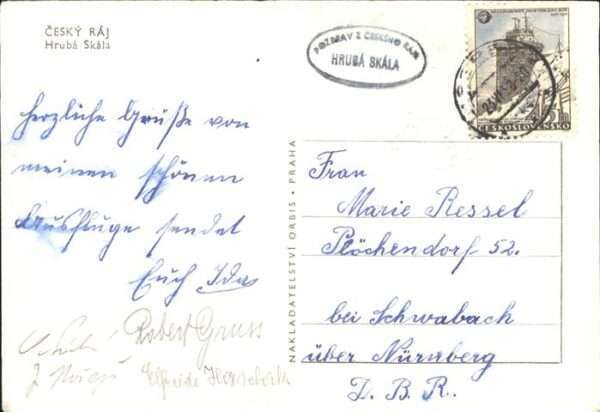 ČESKÝ RÁJ
Hrubá Skála
POZDRAV Z ČESKÉHO RÁJE
HRUBÁ SKÁLA
ČESKOSLOVENSKO
herzliche Grüße von
meinen schönen
Ausfluge sendet
Euch Ida
Robert Gruss
Elfriede
NAKLADATELSTVÍ ORBIS • PRAHA
Frau
Marie Ressel
Plöchendorf 52.
bei Schwabach
über Nürnberg
D. B. R..